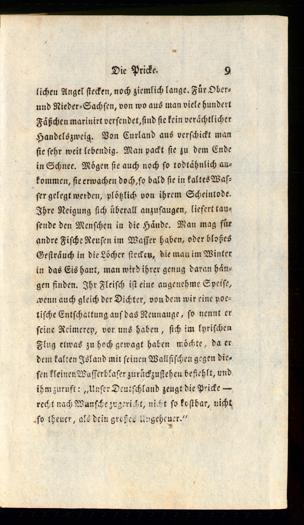 Die Pricke. 9
lichen Angel stecken, noch ziemlich lange. Für Ober-
und Nieder-Sachsen, von wo aus man viele hundert
Fäßchen marinirt versendet, sind sie kein verächtlicher
Handelszweig. Von Curland aus verschickt man
sie sehr weit lebendig. Man packt sie zu dem Ende
in Schnee. Mögen sie auch noch so todtähnlich an-
kommen, sie erwachen doch, so bald sie in kaltes Was-
ser gelegt werden, plötzlich von ihrem Scheintode.
Ihre Neigung sich überall anzusaugen, liefert tau-
sende den Menschen in die Hände. Man mag für
andre Fische Reusen im Wasser haben, oder bloßes
Gesträuch in die Löcher stecken, die man im Winter
in das Eis haut, man wird ihrer genug daran hän-
gen finden. Ihr Fleisch ist eine angenehme Speise,
wenn auch gleich der Dichter, von dem wir eine poe-
tische Entschaltung auf das Neunauge, so nennt er
seine Reimerey, vor uns haben, sich im lyrischen
Flug etwas zu hoch gewagt haben möchte, da er
dem kalten Island mit seinen Wallfischen gegen die-
sen kleinen Wasserblaser zurückzustehen befiehlt, und
ihm zuruft: „Unser Deutschland zeugt die Pricke —
recht nach Wunsche zugericht, nicht so kostbar, nicht
so theuer, als dein großes Ungeheuer.“